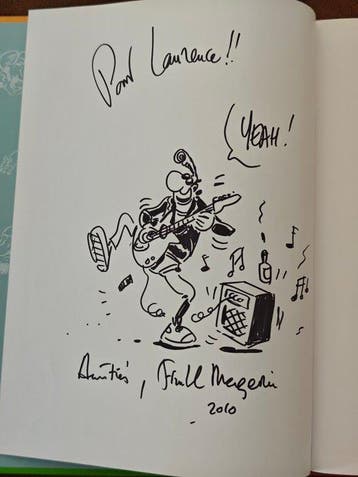 Pour Laurence!!
YEAH!
Amitiés, Frank Margerin
2010